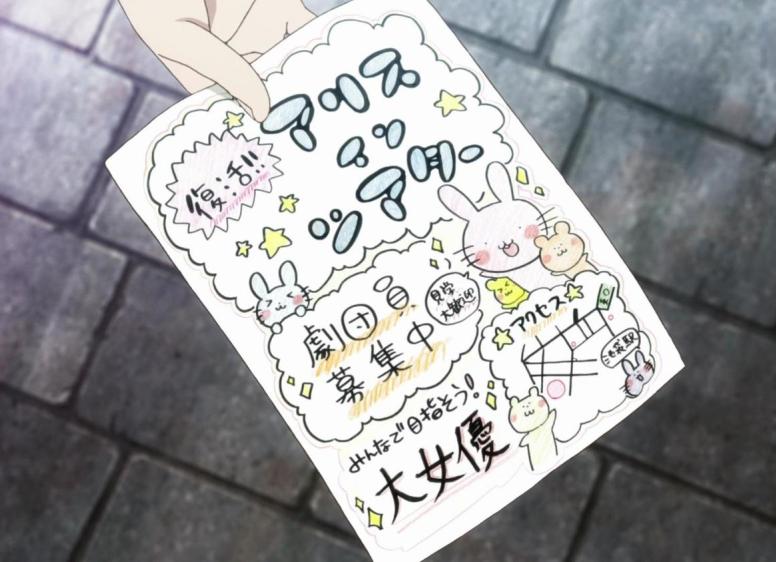 復活!!
アリス
イン
シアター
劇団員
募集中
見学
大歓迎
アクセス
池袋駅
みんなで目指そう!
大女優